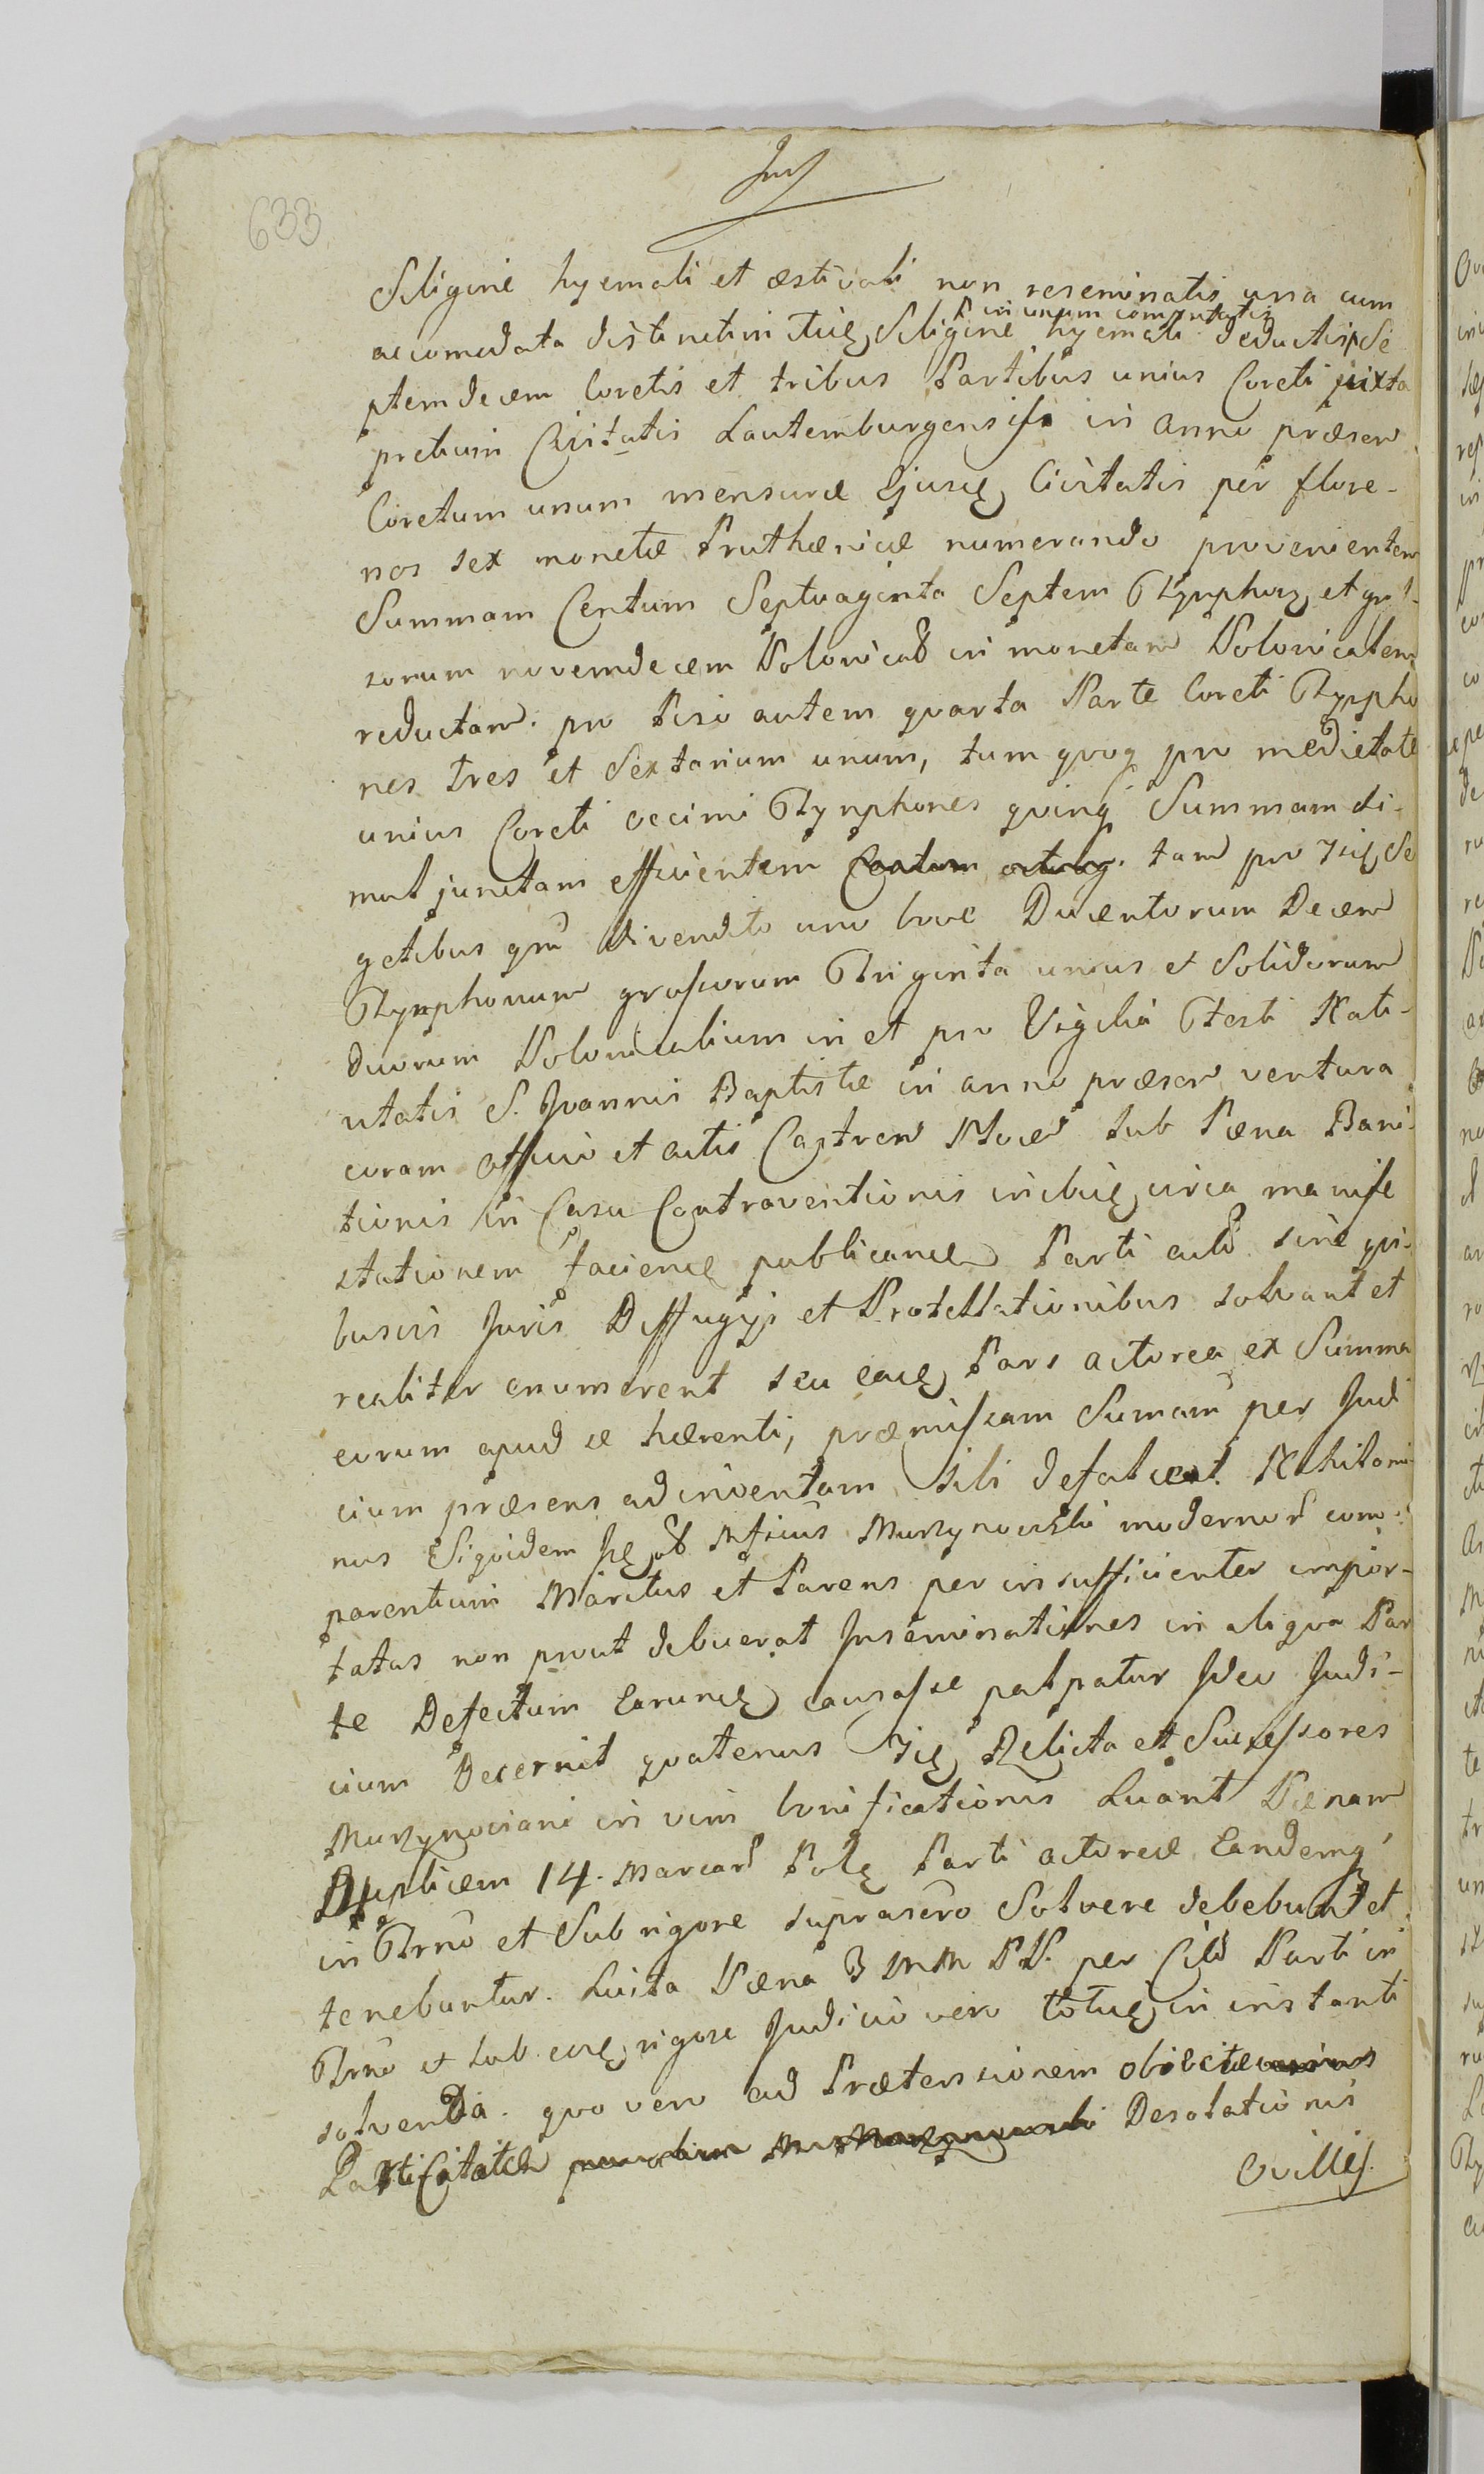 633
Siligine hyemali et æstivali non reseminatis una cum
in unum computatis
accomodata distinctim Siligine hyemali deductis Se
ptemdecem Coretis et tribus Partibus unius Coreti juxta
pretium Civitatis Lautemburgensis in anno præsen
Coretum unum mensuræ Ejusd Civitatis per flore-
nos sex monetæ Pruthænicæ numerando provenientem
Summam Centum Septuaginta Septem Tynphor et gros-
sorum novemdecem Polonical in monetam Polonicalem
reductam. pro Piso autem quarta Parte Coreti Tynpho
nes tres et Sextarium unum, tum quoq pro medietate
unius Coreti ocimi Tynphones quinq Summam si-
mul junctam efficientem Centum tam pro Se
getibus qm divendito uno bove Ducentorum Decem
Tynphonum grossorum Triginta unius et Solidorum
duorum Polonicalium in et pro Vigilia Festi Nati-
vitatis S. Joannis Baptistæ in anno præsen ventura
coram officio et actis Castren sub Pæna Bani-
tionis in Casu Contraventionis circa manife
stationem faciend publicand Parti sine qui-
busvis Juris Diffugijs et Protestationibus solvant et
realiter enumerent seu eand Pars actorea ex Summa
eorum apud se hærenti, præmissam Sumam per Judi
cium præsens adinventam sibi defalcent. Nihilomi-
nus Siquidem Mficus modernor com-
parentium Maritus et Parens per insufficienter impor-
tatas non prout debuerat Inseminationes in aliqua Par
te Defectum Earund causasse palpatur Ideo Judi-
cium Decernit quatenus Relicta et Successores
in vim bonificationis Luant Pænam
Duplicem 14. Marcar Pol Parti actoreæ Eandemq
in Trno et Sub rigore suprascro Solvere debebunt et
tenebuntur. Luita Pæna 3 MM PP. per Cita Parti in
Trno et sub eod rigore Judicio vero in instanti
solvenda. quo vero ad Prætensionem
Parti Desolationis
Ovillis